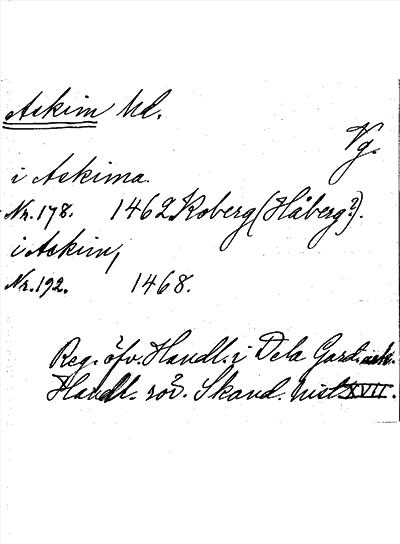 Askim hd.
Vg.
i Askima.
Nr. 178. 1462 Koberg (Håberg?).
i Askim,
Nr. 192. 1468.
Reg. öfv. Handl. i Dela Gard. ark.
Handl. rör. Skand. hist. XVII.